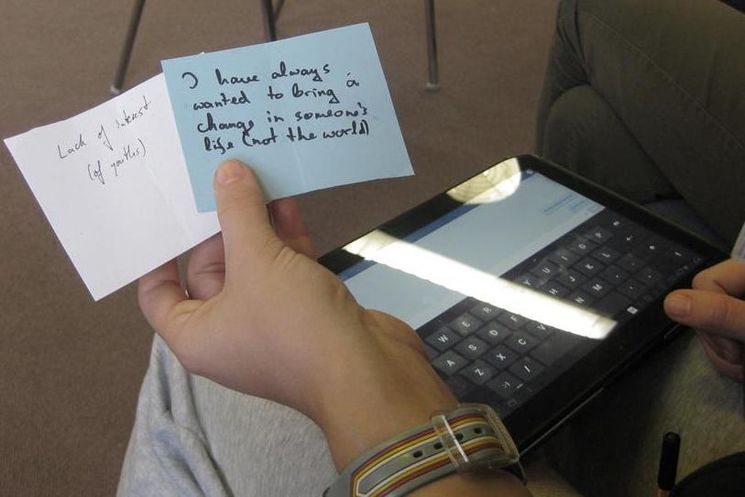 I have always
wanted to bring a
change in someone's
life (not the world)
Lack of interest
(of youths)
Q W E R T Y U I O P
A S D F G H J K L
Z X C V